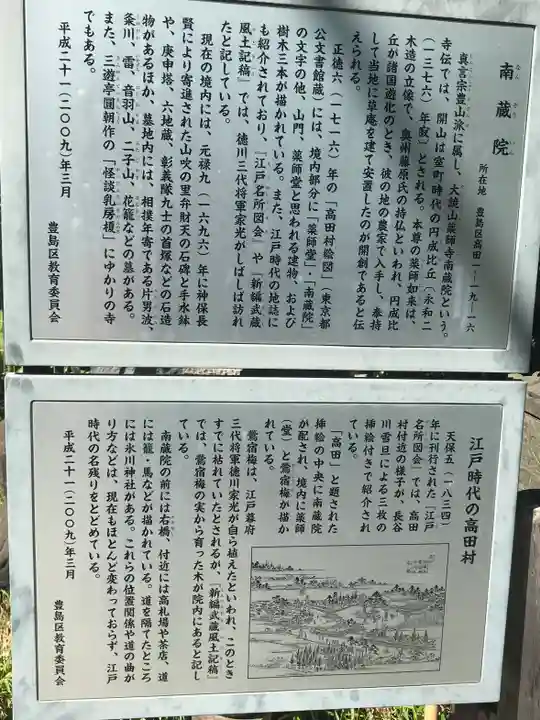 南蔵院
なんぞういん
所在地　豊島区高田一ー一九ー一六
真言宗豊山派に属し、大鏡山薬師寺南蔵院という。
寺伝では、開山は室町時代の円成比丘（永和二
（一三七六）年寂）とされる。本尊の薬師如来は、
木造の立像で、奥州藤原氏の持仏といわれ、円成比
丘が諸国遊化のとき、彼の地の農家で入手し、奉持
して当地に草庵を建て安置したのが開創であると伝
えられる。
正徳六（一七一六）年の「高田村絵図」（東京都
公文書館蔵）には、境内部分に「薬師堂」、「南蔵院」
の文字の他、山門、薬師堂と思われる建物、および
樹木三本が描かれている。また、江戸時代の地誌に
も紹介されており、『江戸名所図会』や『新編武蔵
風土記稿』では、徳川三代将軍家光がしばしば訪れ
たと記している。
現在の境内には、元禄九（一六九六）年に神保長
賢により寄進された山吹の里弁財天の石碑と手水鉢
や、庚申塔、六地蔵、彰義隊九士の首塚などの石造
物があるほか、墓地内には、相撲年寄である片男波、
粂川、雷、音羽山、二子山、花籠などの墓がある。
また、三遊亭圓朝作の「怪談乳房榎」にゆかりの寺
でもある。
平成二十一（二〇〇九）年三月
豊島区教育委員会
江戸時代の高田村
天保五（一八三四）
年に刊行された『江戸
名所図会』では、高田
村付近の様子が、長谷
川雪旦による三枚の
挿絵付きで紹介され
ている。
「高田」と題された
挿絵の中央に南蔵院
が配され、境内に薬師
（堂）と鶯宿梅が描か
れている。
鶯宿梅は、江戸幕府
三代将軍徳川家光が自ら植えたといわれ、このとき
すでに枯れていたとあるが、『新編武蔵風土記稿』
では、鶯宿梅の実から育った木が院内にあると記し
ている。
南蔵院の前には右橋、付近には高札場や茶店、道
には籠・馬などが描かれている。道を隔てたところ
には氷川神社がある。これらの位置関係や道の曲が
り方などは、現在もほとんど変わっておらず、江戸
時代の名残りをとどめている。
平成二十一（二〇〇九）年三月
豊島区教育委員会